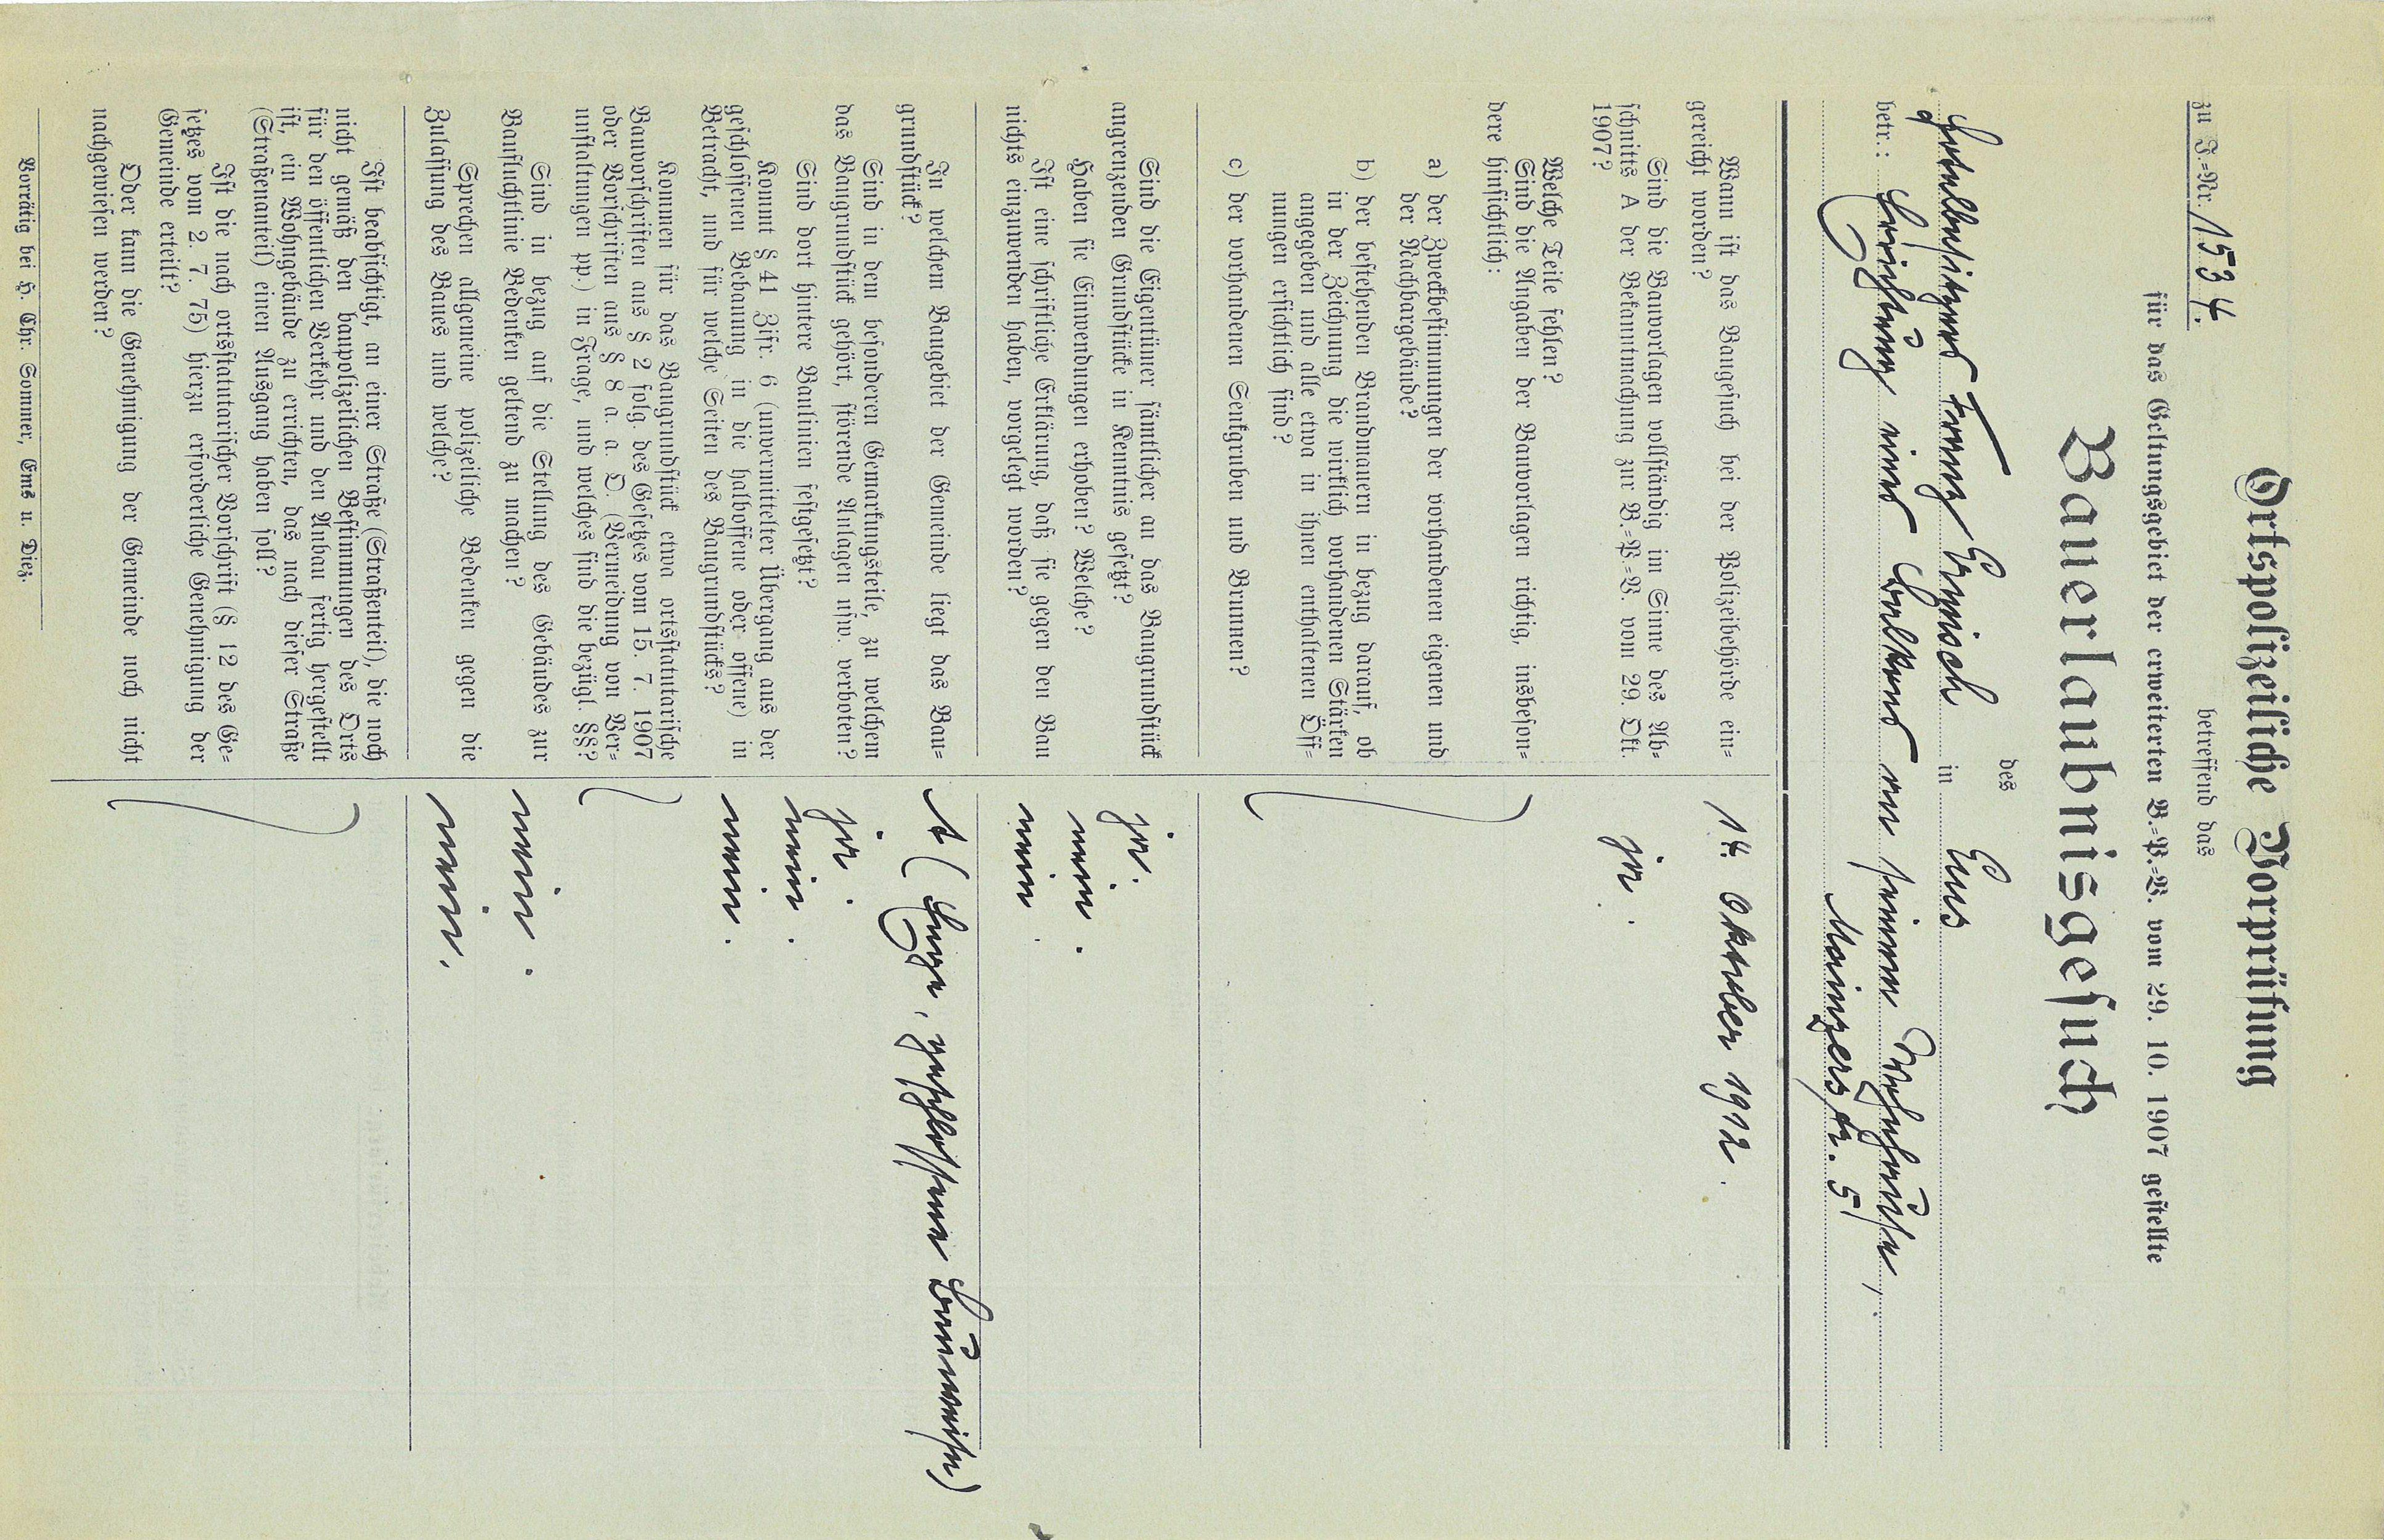 zu J.=Nr. 1534.
Ortspolizeiliche Vorprüfung
betreffend das
für das Geltungsgebiet der erweiterten B.=P.=V. vom 29. 10. 1907 gestellte
Bauerlaubnisgesuch
des
Hotelbesitzers Franz Ermisch in Ems
betr.: Errichtung eines Balkons an seinem Wohnhause,
Mainzerstr. 5
Wann ist das Baugesuch bei der Polizeibehörde ein=
gereicht worden?
14. Oktober 1912.
Sind die Bauvorlagen vollständig im Sinne des Ab=
schnitts A der Bekanntmachung zur B.=P.=V. vom 29. Okt.
1907?
ja.
Welche Teile fehlen?
Sind die Angaben der Bauvorlagen richtig, insbeson=
dere hinsichtlich:
a) der Zweckbestimmungen der vorhandenen eigenen und
der Nachbargebäude?
b) der bestehenden Brandmauern in bezug darauf, ob
in der Zeichnung die wirklich vorhandenen Stärken
angegeben und alle etwa in ihnen enthaltenen Öff=
nungen ersichtlich sind?
c) der vorhandenen Senkgruben und Brunnen?
Sind die Eigentümer sämtlicher an das Baugrundstück
angrenzenden Grundstücke in Kenntnis gesetzt?
ja.
Haben sie Einwendungen erhoben? Welche?
nein.
Ist eine schriftliche Erklärung, daß sie gegen den Bau
nichts einzuwenden haben, vorgelegt worden?
nein.
In welchem Baugebiet der Gemeinde liegt das Bau=
grundstück?
A (Enge, geschlossene Bauweise)
Sind in dem besonderen Gemarkungsteile, zu welchem
das Baugrundstück gehört, störende Anlagen usw. verboten?
ja.
Sind dort hintere Baulinien festgesetzt?
nein.
Kommt § 41 Zifr. 6 (unvermittelter Übergang aus der
geschlossenen Bebauung in die halboffene oder offene) in
Betracht, und für welche Seiten des Baugrundstücks?
nein.
Kommen für das Baugrundstück etwa ortsstatutarische
Bauvorschriften aus § 2 folg. des Gesetzes vom 15. 7. 1907
oder Vorschriften aus § 8 a. a. O. (Vermeidung von Ver=
unstaltungen pp.) in Frage, und welches sind die bezügl. §§?
Sind in bezug auf die Stellung des Gebäudes zur
Baufluchtlinie Bedenken geltend zu machen?
nein.
Sprechen allgemeine polizeiliche Bedenken gegen die
Zulassung des Baues und welche?
nein.
Ist beabsichtigt, an einer Straße (Straßenteil), die noch
nicht gemäß den baupolizeilichen Bestimmungen des Orts
für den öffentlichen Verkehr und den Anbau fertig hergestellt
ist, ein Wohngebäude zu errichten, das nach dieser Straße
(Straßenanteil) einen Ausgang haben soll?
Ist die nach ortsstatutarischer Vorschrift (§ 12 des Ge=
setzes vom 2. 7. 75) hierzu erforderliche Genehmigung der
Gemeinde erteilt?
Oder kann die Genehmigung der Gemeinde noch nicht
nachgewiesen werden?
Vorrätig bei H. Chr. Sommer, Ems u. Diez.